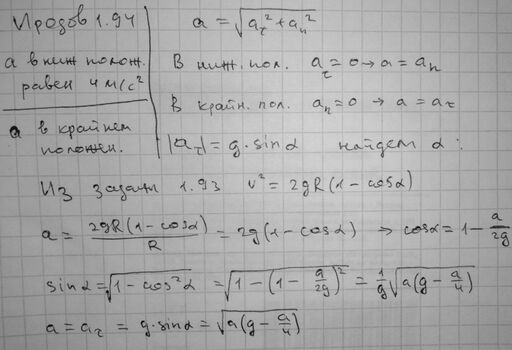 Иродов 1.94
a в ниж. полож.
равен 4 м/с²
a в крайнем
положен.
a = √(a_τ² + a_n²)
В ниж. пол. a_τ = 0 → a = a_n
В крайн. пол. a_n = 0 → a = a_τ
|a_τ| = g · sinα найдем α :
Из задачи 1.93 v² = 2gR(1 - cosα)
a = 2gR(1 - cosα)/R = 2g(1 - cosα) → cosα = 1 - a/2g
sinα = √(1 - cos²α) = √(1 - (1 - a/2g)²) = 1/g √(a(g - a/4))
a = a_τ = g · sinα = √(a(g - a/4))